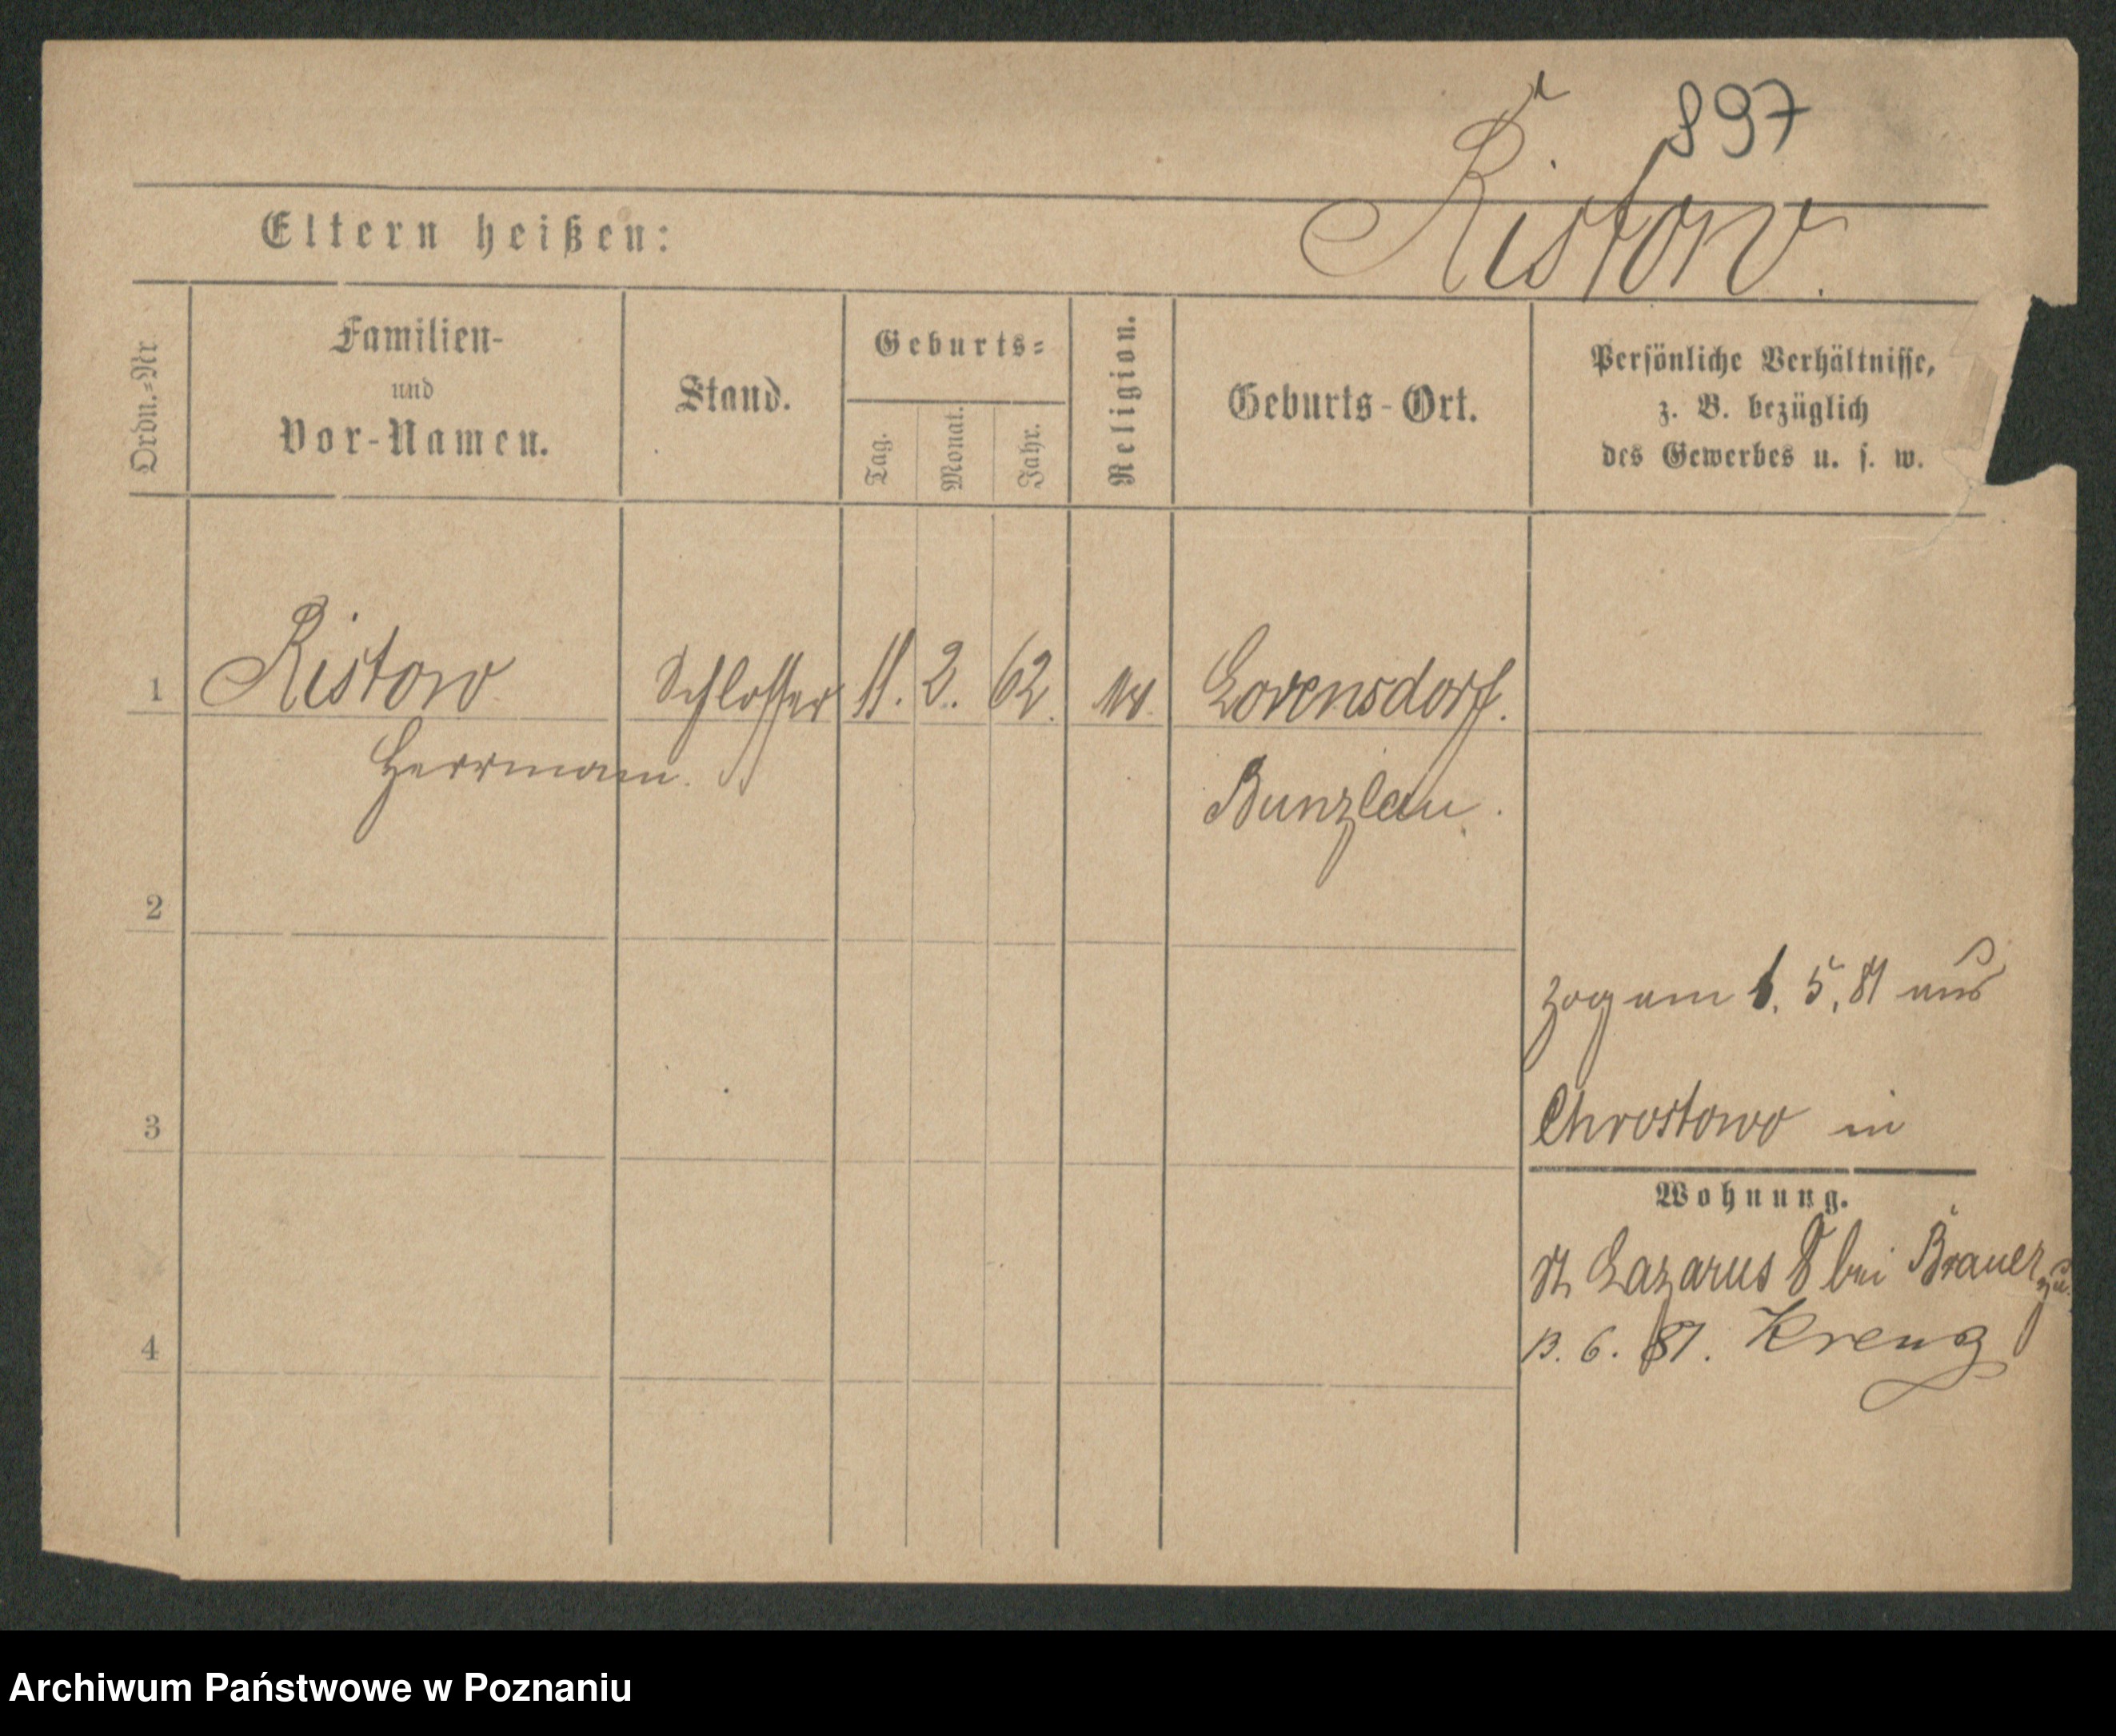 897
Ristow.
Eltern heißen:
Ordn.=Nr.
Familien-
und
Vor-Namen.
Stand.
Geburts=
Tag.
Monat.
Jahr.
Religion.
Geburts-Ort.
Persönliche Verhältnisse,
z. B. bezüglich
des Gewerbes u. s. w.
1 Ristow Schlosser 11. 2. 62. Lorensdorf.
Herrmann. Bunzlau.
2
zog am 6. 5. 87 aus
3 Chrostowo in
Wohnung.
St Lazarus 8 bei Brauer
4 13. 6. 87. Kreuz
Archiwum Państwowe w Poznaniu